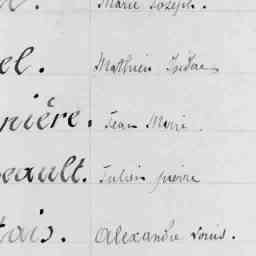 Marie Joseph.
el. Mathieu Isidore
nière. Jean Marie
eault. Julien pierre
tais. Alexandre Louis.